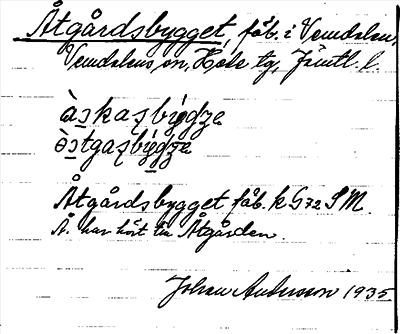 Åtgårdsbygget, fäb. i Vemdalen,
Vemdalens sn, Hede tg, Jämtl. l.
Åtgårdsbygget fäb. k G72 S M.
Å. har hört till Åtgården.
Johan Andersson 1935